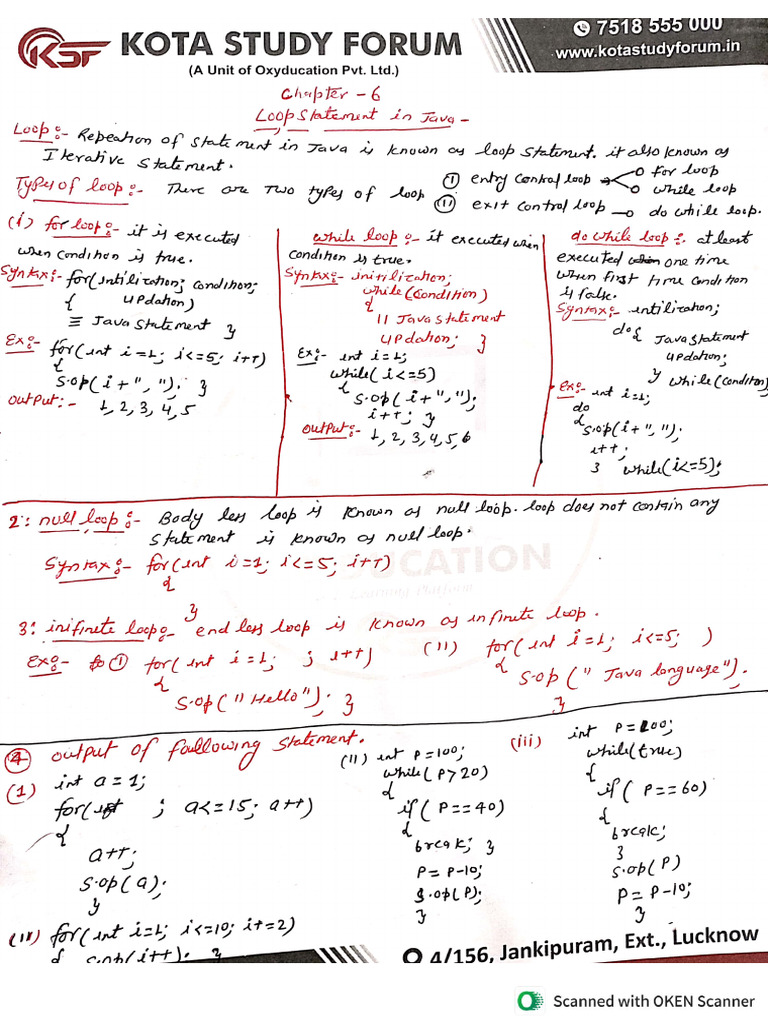 KSF KOTA STUDY FORUM
(A Unit of Oxyducation Pvt. Ltd.)
7518 555 000
www.kotastudyforum.in
Chapter - 6
Loop Statement in Java -
Loop:- Repeation of statement in Java is known as loop statement. it also known as
Iterative statement.
Types of loop:- There are Two types of loop (i) entry control loop → for loop
while loop
(ii) exit control loop → do while loop.
(i) for loop:- it is executed
when condition is true.
Syntax:- for(intilization; condition;
{ updation)
≡ Java statement }
Ex:- for(int i=1; i<=5; i++)
{
S.op(i+","); }
output:- 1,2,3,4,5
while loop:- it executed when
condition is true.
Syntax:- initilization;
while(condition)
{
|| Java statement
updation; }
Ex:- int i=1;
while(i<=5)
{
S.op(i+",");
i++; }
output:- 1,2,3,4,5,6
do while loop:- atleast
executed one time
when first time condition
is false.
Syntax:- intilization;
do{ Java statement
updation;
} while(condition)
Ex:- int i=1;
do
{
S.op(i+",");
i++;
} while(i<=5);
2: null loop:- Body less loop is known as null loop. loop does not contain any
statement is known as null loop.
Syntax:- for(int i=1; i<=5; i++)
{
}
EDUCATION
3: inifinete loop:- end less loop is known as infinete loop.
Ex:- (i) for(int i=1; ; i++)
{
S.op("Hello"); }
(ii) for(int i=1; i<=5; )
{
S.op("Java language");
}
4 output of faullowing statement.
(1) int a=1;
for( ; a<=15; a++)
{
a++;
S.op(a);
}
(ii) int P=100;
while(P>20)
{
if(P==40)
{
break; }
P=P-10;
S.op(P);
}
(iii) int P=100;
while(true)
{
if(P==60)
{
break;
}
S.op(P)
P=P-10;
}
for(int i=1; i<=10; i+=2)
{ S.op(i++); }
4/156, Jankipuram, Ext., Lucknow
Scanned with OKEN Scanner